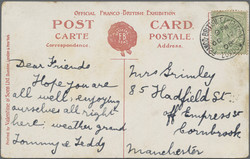 OFFICIAL FRANCO-BRITISH EXHIBITION
POST CARD.
CARTE POSTALE.
Correspondence. Address.
Dear Friends
Hope you are
all well, enjoying
ourselves all right
here, weather grand
Tommy & Teddy
Mrs Grimley
85 Hadfield St
off Empress St
Cornbrook
Manchester